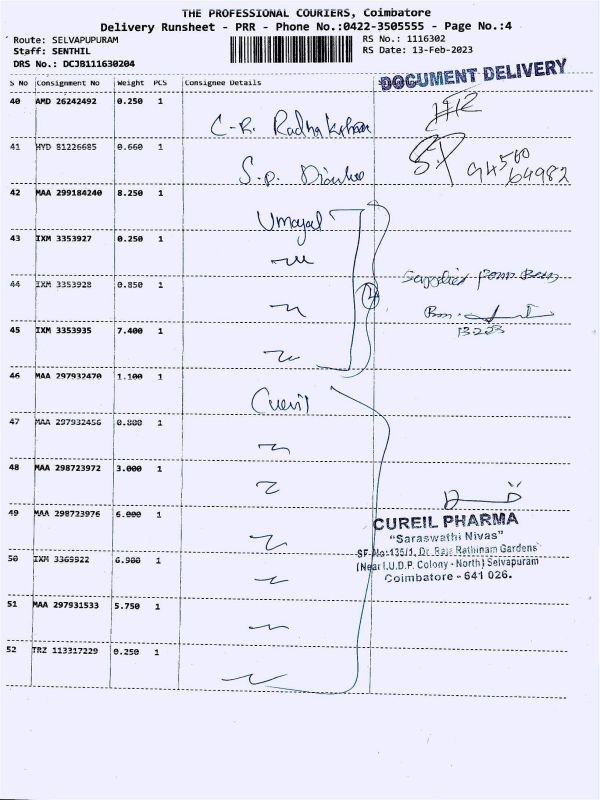 THE PROFESSIONAL COURIERS, Coimbatore
Delivery Runsheet - PRR - Phone No.:0422-3505555 - Page No.:4
Route: SELVAPUPURAM
RS No.: 1116302
Staff: SENTHIL
RS Date: 13-Feb-2023
DRS No.: DCJB111630204
S No Consignment No Weight PCS Consignee Details
DOCUMENT DELIVERY
40 AMD 26242492 0.250 1
C-R. Radhakrishnan
41 HYD 81226685 0.660 1
S.P.
94500
64982
S.P.
42 MAA 299184240 8.250 1
Umayal
43 IXM 3353927 0.250 1
44 IXM 3353928 0.850 1
4
45 IXM 3353935 7.400 1
46 MAA 297932470 1.100 1
Cureil
47 MAA 297932456 0.800 1
48 MAA 298723972 3.000 1
49 MAA 298723976 6.000 1
CUREIL PHARMA
"Saraswathi Nivas"
SF No:135/1, Dr. Raja Rathinam Gardens
(Near I.U.D.P. Colony - North) Selvapuram
Coimbatore - 641 026.
50 IXM 3369922 6.900 1
51 MAA 297931533 5.750 1
52 TRZ 113317229 0.250 1